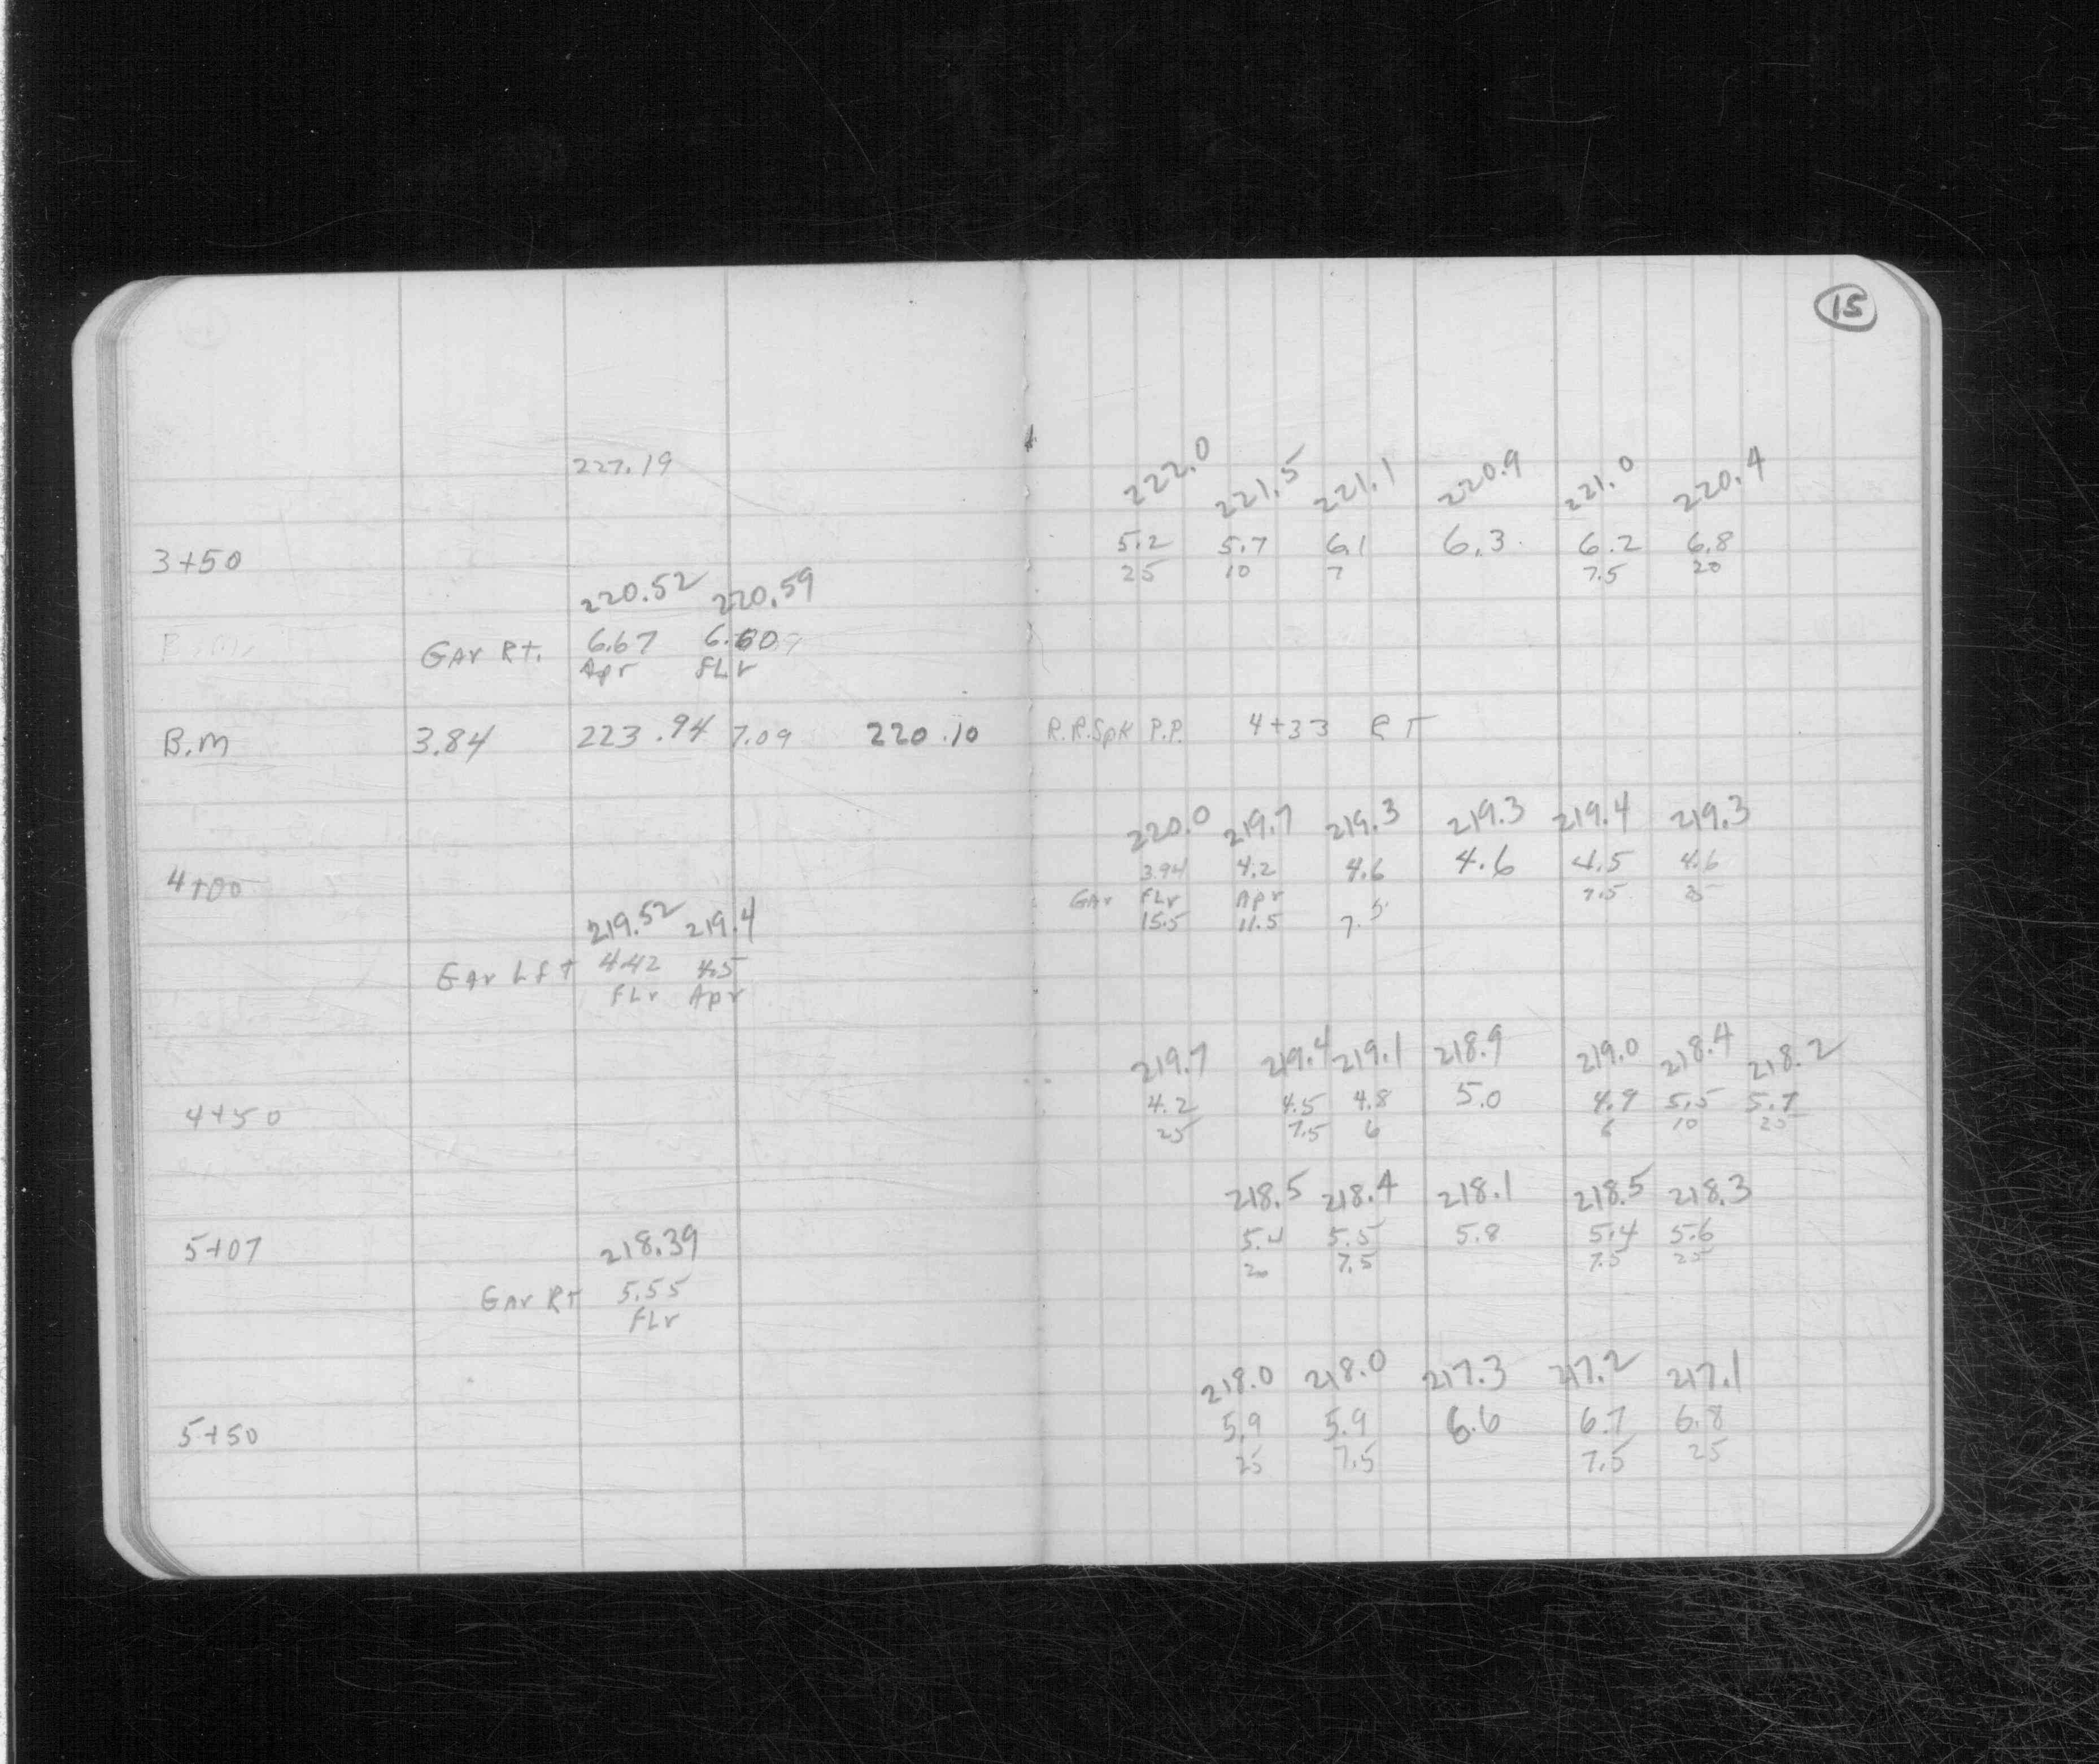 15
227.19 222.0 221.5 221.1 220.9 221.0 220.4
3+50 5.2 5.7 6.1 6.3 6.2 6.8
25 10 7 7.5 20
220.52 220.59
B.M. GAr Rt. 6.67 6.60
Apr FLr
B.M 3.84 223.94 7.09 220.10 R.R.Spk P.P. 4+33 RT
220.0 219.7 219.3 219.3 219.4 219.3
4+00 3.94 4.2 4.6 4.6 4.5 4.6
GAr FLr Apr 7.5 25
15.5 11.5 7.5
219.52 219.4
GAr Lft 4.42 4.5
FLr Apr
219.7 219.4 219.1 218.9 219.0 218.4 218.2
4+50 4.2 4.5 4.8 5.0 4.9 5.5 5.7
25 7.5 6 6 10 25
218.5 218.4 218.1 218.5 218.3
5+07 5.4 5.5 5.8 5.4 5.6
20 7.5 7.5 25
218.39
GAr RT 5.55
FLr
218.0 218.0 217.3 217.2 217.1
5+50 5.9 5.9 6.6 6.7 6.8
25 7.5 7.5 25